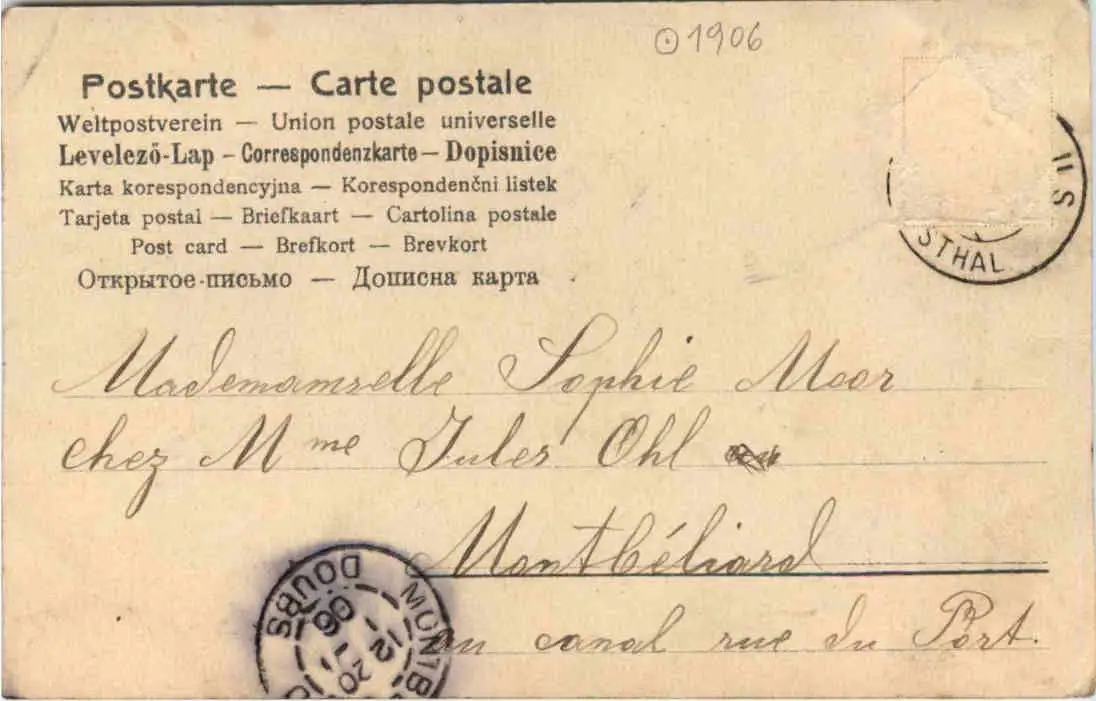 ⊙1906
Postkarte — Carte postale
Weltpostverein — Union postale universelle
Levelező-Lap – Correspondenzkarte – Dopisnice
Karta korespondencyjna — Korespondenčni listek
Tarjeta postal — Briefkaart — Cartolina postale
Post card — Brefkort — Brevkort
Открытое-письмо — Дописна карта
II S
STHAL
Mademamselle Sophie Moor
chez Mme Jules Ohl
Montbéliard
au canal rue du Port.
DOUBS
06
12
20